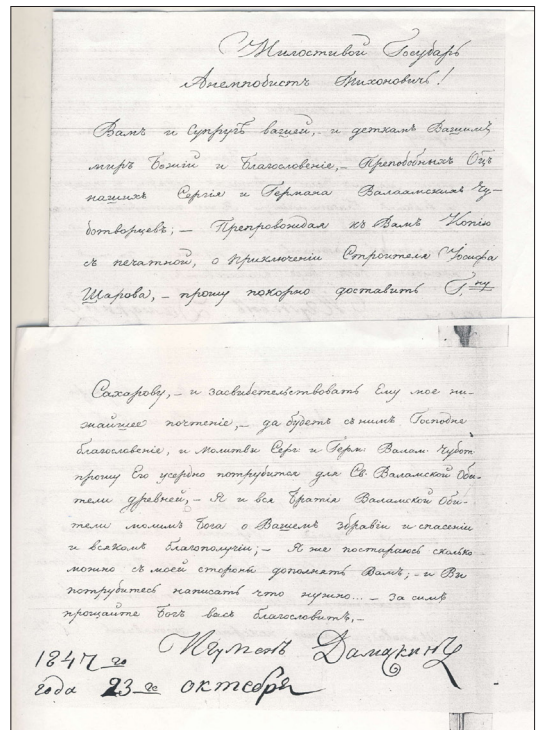 Милостивой Государь
Анемподистъ Тихоновичь!
Вамъ и супругѣ вашей, и деткамъ Вашимъ,
миръ Божій и Благословеніе, – Преподобныхъ Оц.
нашихъ Сергія и Германа Валаамскихъ Чу-
дотворцевъ; – Препровождая къ Вамъ Копію
съ печатной, о приключеніи Строителя Іосифа
Шарова, – прошу покорно доставить Г.ну
Сахарову, – и засвидетельствовать Ему мое ни-
жайшее почтеніе, – да будетъ съ нимъ Господне
благословеніе, и молитвы Серг и Герм: Валам: Чудот
прошу Его усердно потрубится для Св. Валамской Оби-
тели древней, – Я и вся Братія Валамской Оби-
тели молимъ Бога о Вашемъ здравіи и спасеніи
и всякомъ благополучіи; – Я же постараюсь сколько
можно съ моей стороны дополнять Вамъ; – и Вы
потрубитесь написать что нужно... – за симъ
прощайте Богъ васъ благословитъ, –
Игуменъ Дамаскинъ
1847 го
года 23-го октебря